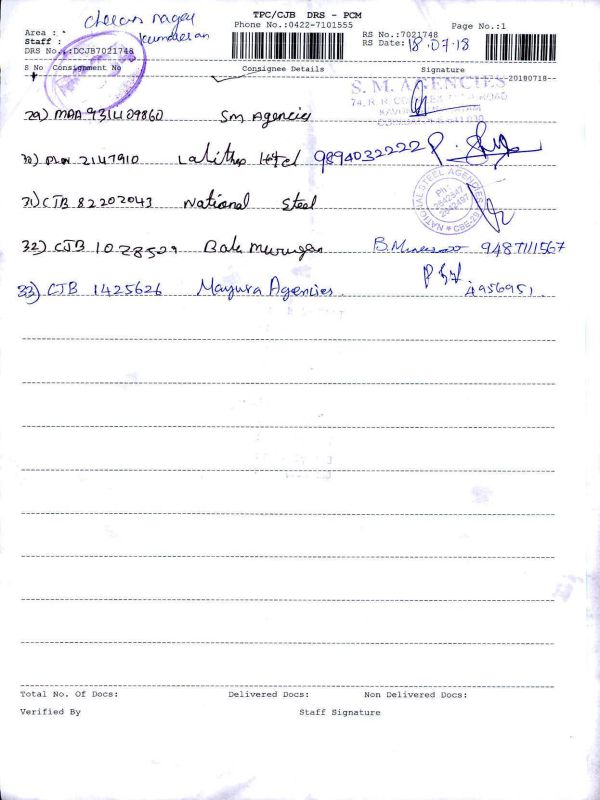 TPC/CJB DRS - PCM
Phone No.:0422-7101555
Page No.:1
Area :
Staff :
DRS No.:DCJB7021748
RS No.:7021748
RS Date: 18.07.18
S No Consignment No Consignee Details Signature
--20180718--
S. M. AGENCIES
29) MAA 931409860 SM Agencies
30) 2147910 Lalitha Htel 9894032222
31) CJB 82202043 National Steel
NATIONAL STEEL AGENCIES
Ph: 2642547
2642497
CBE-29
32) CJB 1028509 Bala Murugan 9487111567
33) CJB 1425626 Mayura Agencies 4956951
Total No. Of Docs: Delivered Docs: Non Delivered Docs:
Verified By Staff Signature